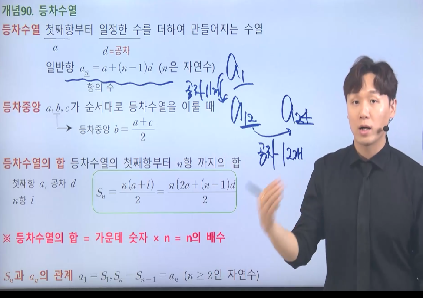 개념90. 등차수열
등차수열 첫째항부터 일정한 수를 더하여 만들어지는 수열
a d=공차
일반항 aₙ=a+(n−1)d (n은 자연수)
항의 수
공차 11개
a₁
a₁₂ a₂₄
공차 12개
등차중앙 a, b, c가 순서대로 등차수열을 이룰 때
→ 등차중앙 b=(a+c)/2
등차수열의 합 등차수열의 첫째항부터 n항 까지의 합
첫째항 a, 공차 d
n항 l
Sₙ = n(a+l)/2 = n{2a+(n−1)d}/2
※ 등차수열의 합 = 가운데 숫자 × n = n의 배수
Sₙ과 aₙ의 관계 a₁=S₁, Sₙ−Sₙ₋₁=aₙ (n≥2인 자연수)